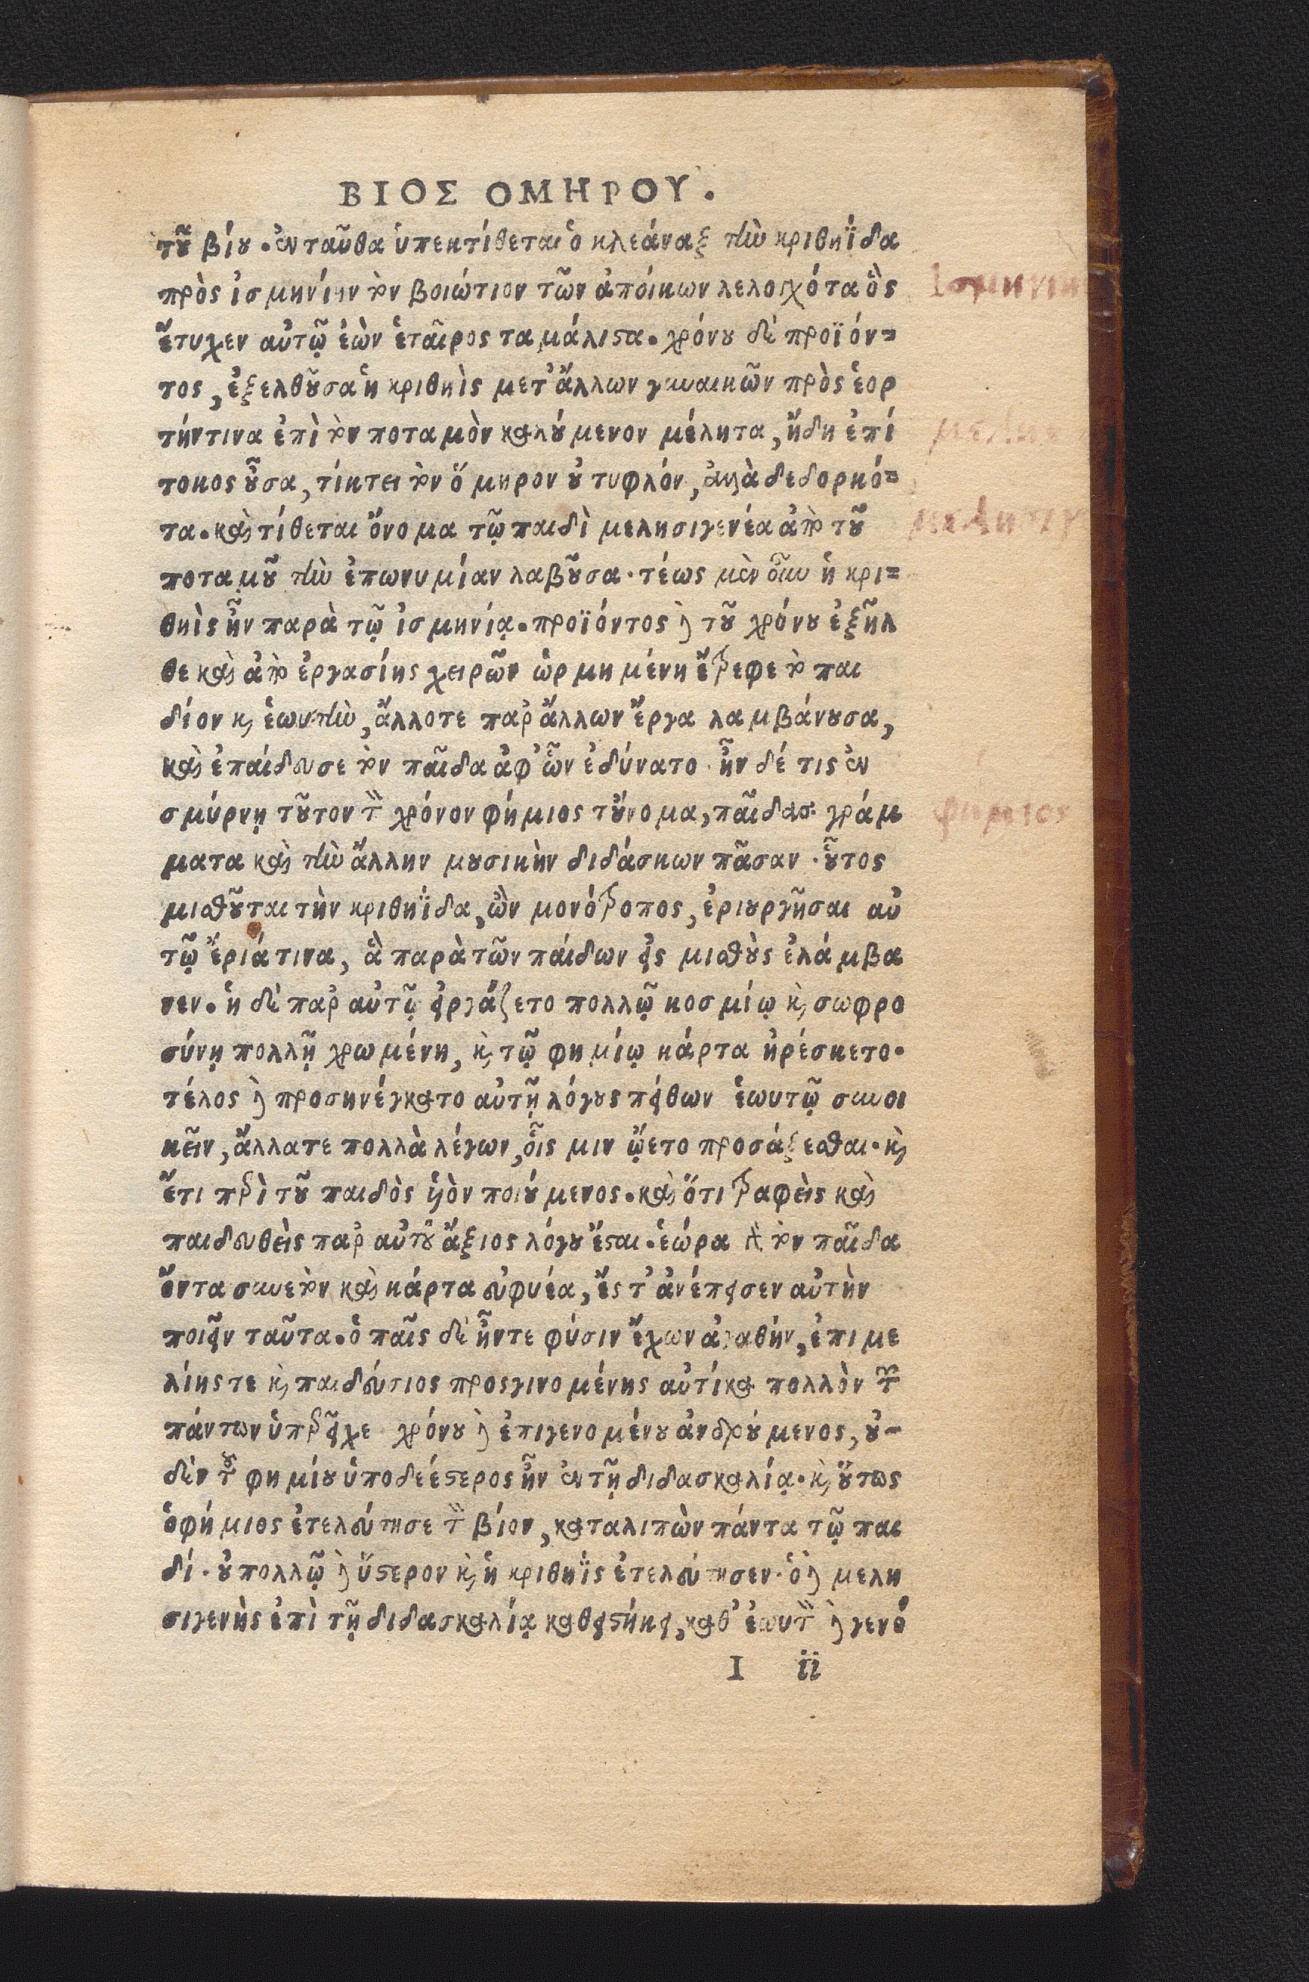 ΒΙΟΣ ΟΜΗΡΟΥ.
τοῦ βίου. ἐνταῦθα ὑπεκτίθεται ὁ κλεάναξ τὴν κριθηΐδα
πρὸς ἰσμηνίην τὸν βοιώτιον τῶν ἀποίκων λελοιχότα ὃς
ἔτυχεν αὐτῷ ἐὼν ἑταῖρος τα μάλιστα. χρόνου δὲ προϊόν=
τος, ἐξελθοῦσα ἡ κριθηὶς μετ' ἄλλων γυναικῶν πρὸς ἑορ
τήντινα ἐπὶ τὸν ποταμὸν καλούμενον μέλητα, ἤδη ἐπί
τοκος οὖσα, τίκτει τὸν ὅμηρον οὐ τυφλόν, ἀλλὰ δεδορκό=
τα. καὶ τίθεται ὄνομα τῷ παιδὶ μελησιγενέα ἀπὸ τοῦ
ποταμοῦ τὴν ἐπωνυμίαν λαβοῦσα. τέως μὲν οὖν ἡ κρι=
θηὶς ἦν παρὰ τῷ ἰσμηνίᾳ. προϊόντος δὲ τοῦ χρόνου ἐξῆλ
θε καὶ ἀπὸ ἐργασίης χειρῶν ὡρμημένη ἔτρεφε τὸ παι
δίον καὶ ἑωυτὴν, ἄλλοτε παρ' ἄλλων ἔργα λαμβάνουσα,
καὶ ἐπαίδευσε τὸν παῖδα ἀφ' ὧν ἐδύνατο. ἦν δέ τις ἐν
σμύρνῃ τοῦτον τὸν χρόνον φήμιος τοὔνομα, παῖδας γράμ
ματα καὶ τὴν ἄλλην μουσικὴν διδάσκων πᾶσαν. οὗτος
μισθοῦται τὴν κριθηΐδα, ὢν μονότροπος, ἐριουργῆσαι αὐ
τῷ ἔριάτινα, ἃ παρὰ τῶν παίδων εἰς μισθοὺς ἐλάμβα
νεν. ἡ δὲ παρ' αὐτῷ εἰργάζετο πολλῷ κοσμίῳ καὶ σωφρο
σύνῃ πολλῇ χρωμένη, καὶ τῷ φημίῳ κάρτα ἠρέσκετο.
τέλος δὲ προσηνέγκατο αὐτῇ λόγους πείθων ἑωυτῷ συνοι
κεῖν, ἄλλατε πολλὰ λέγων, οἷς μιν ᾤετο προσάξεσθαι. καὶ
ἔτι περὶ τοῦ παιδὸς υἱὸν ποιούμενος. καὶ ὅτι τραφεὶς καὶ
παιδευθεὶς παρ' αὐτοῦ ἄξιος λόγου ἔσται. ἑώρα γὰρ τὸν παῖδα
ὄντα συνετὸν καὶ κάρτα εὐφυέα, ἔς τ' ἀνέπεισεν αὐτὴν
ποιεῖν ταῦτα. ὁ παῖς δὲ ἦντε φύσιν ἔχων ἀγαθήν, ἐπιμε
λίης τε καὶ παιδεύσιος προσγινομένης αὐτίκα πολλὸν τῶν
πάντων ὑπερεῖχε χρόνου δὲ ἐπιγενομένου ἀνδρούμενος, οὐ-
δὲν τοῦ φημίου ὑποδεέστερος ἦν ἐν τῇ διδασκαλίᾳ. καὶ οὕτως
ὁ φήμιος ἐτελεύτησε τὸν βίον, καταλιπὼν πάντα τῷ παι
δί. οὐ πολλῷ δὲ ὕστερον καὶ ἡ κριθηῒς ἐτελεύτησεν. ὁ δὲ μελη
σιγενὴς ἐπὶ τῇ διδασκαλίᾳ καθειστήκει, καθ' ἑωυτὸν δὲ γενό
I ii
Ισμηνιη
μελης
μελησιγ
φημιος